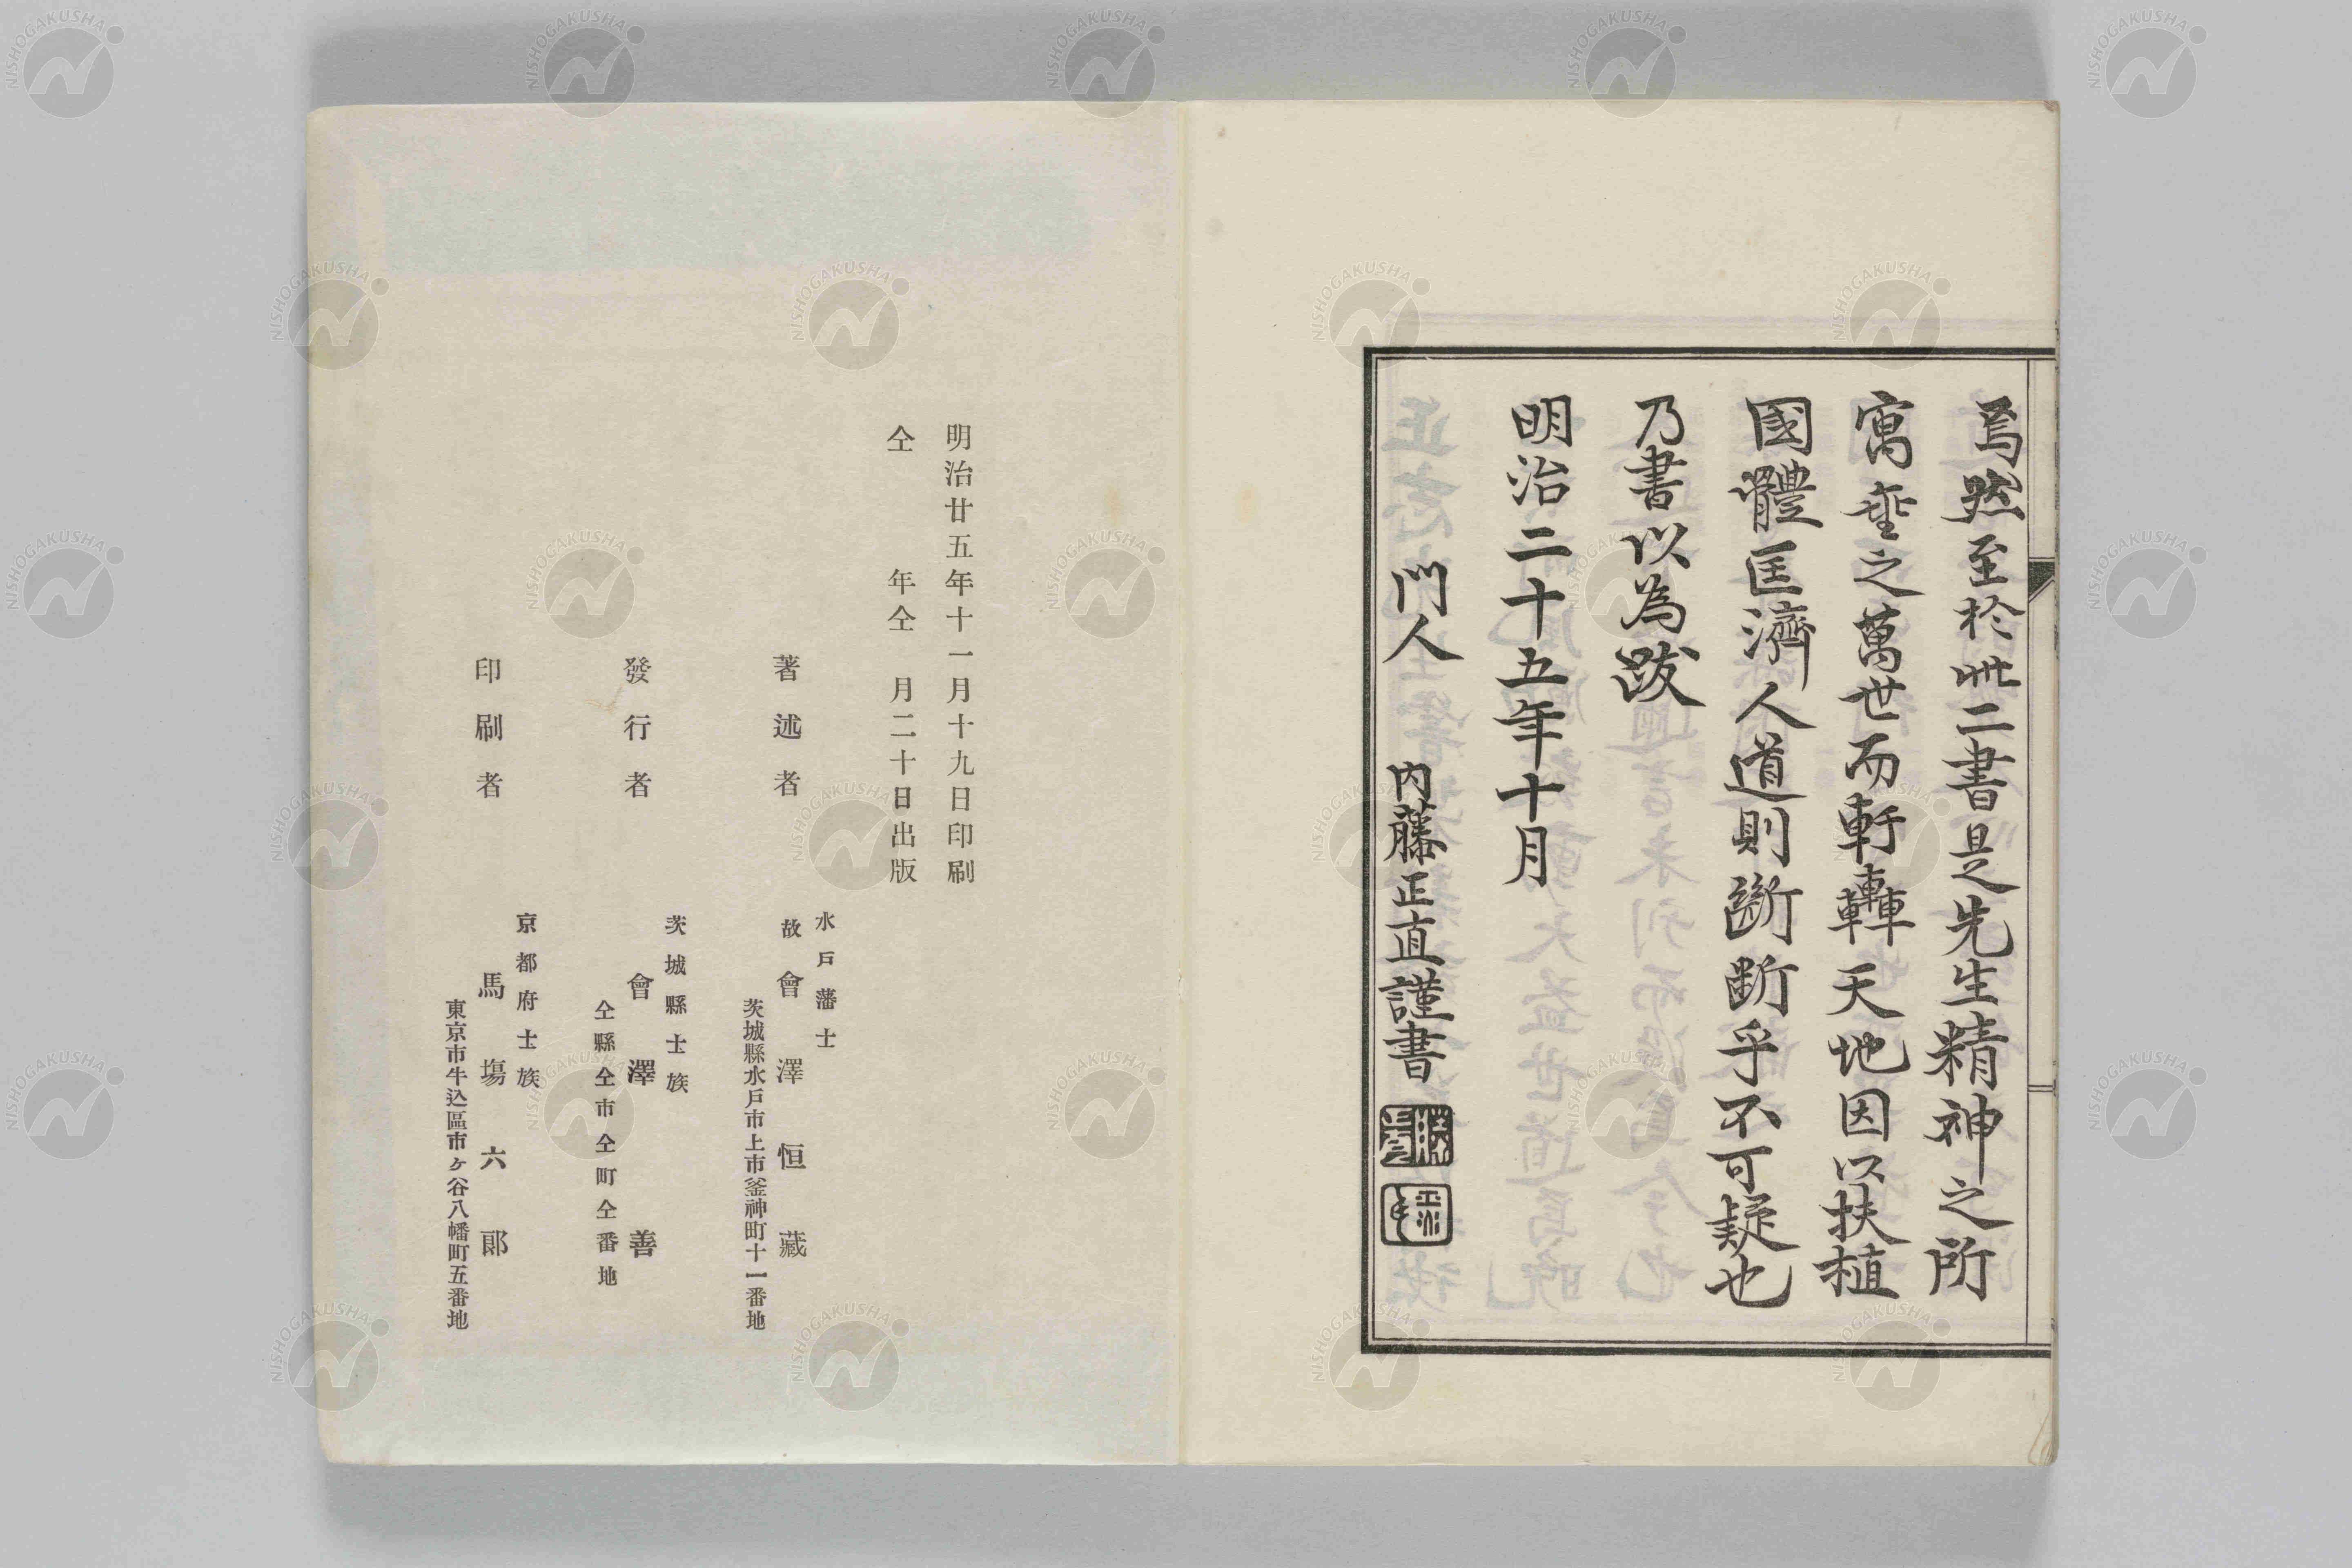 焉然至於此二書是先生精神之所
寓垂之萬世而軒轟天地因以扶植
國體匡濟人道則斷斷乎不可疑也
乃書以為跋
明治二十五年十月
門人 内藤正直謹書
明治廿五年十一月十九日印刷
仝 年仝 月二十日出版
著述者
水戸藩士
故會澤恒藏
茨城縣水戸市上市釜神町十一番地
發行者
茨城縣士族
會澤善
仝縣仝市仝町仝番地
印刷者
京都府士族
馬塲六郞
東京市牛込區市ヶ谷八幡町五番地
NISHOGAKUSHA